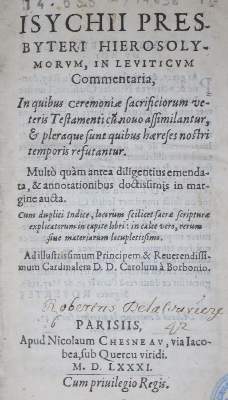 ISYCHII PRES-
BYTERI HIEROSOLY-
MORVM, IN LEVITICVM
Commentaria,
In quibus ceremoniæ sacrificiorum ve-
teris Testamenti cū nouo assimilantur,
& pleraque sunt quibus hæreses nostri
temporis refutantur.
Multò quàm antea diligentius emenda-
ta, & annotationibus doctissimis in mar-
gine aucta.
Cum duplici Indice, locorum scilicet sacræ scripturæ
explicatorum in capite libri: in calce verò, rerum
siue materiarum locupletissimo.
Ad illustrissimum Principem & Reuerendiss-
imum Cardinalem D. D. Carolum à Borbonio.
Robertus
42
PARISIIS,
Apud Nicolaum CHESNEAV, via Iaco-
bea, sub Quercu viridi.
M. D. LXXXI.
Cum priuilegio Regis.